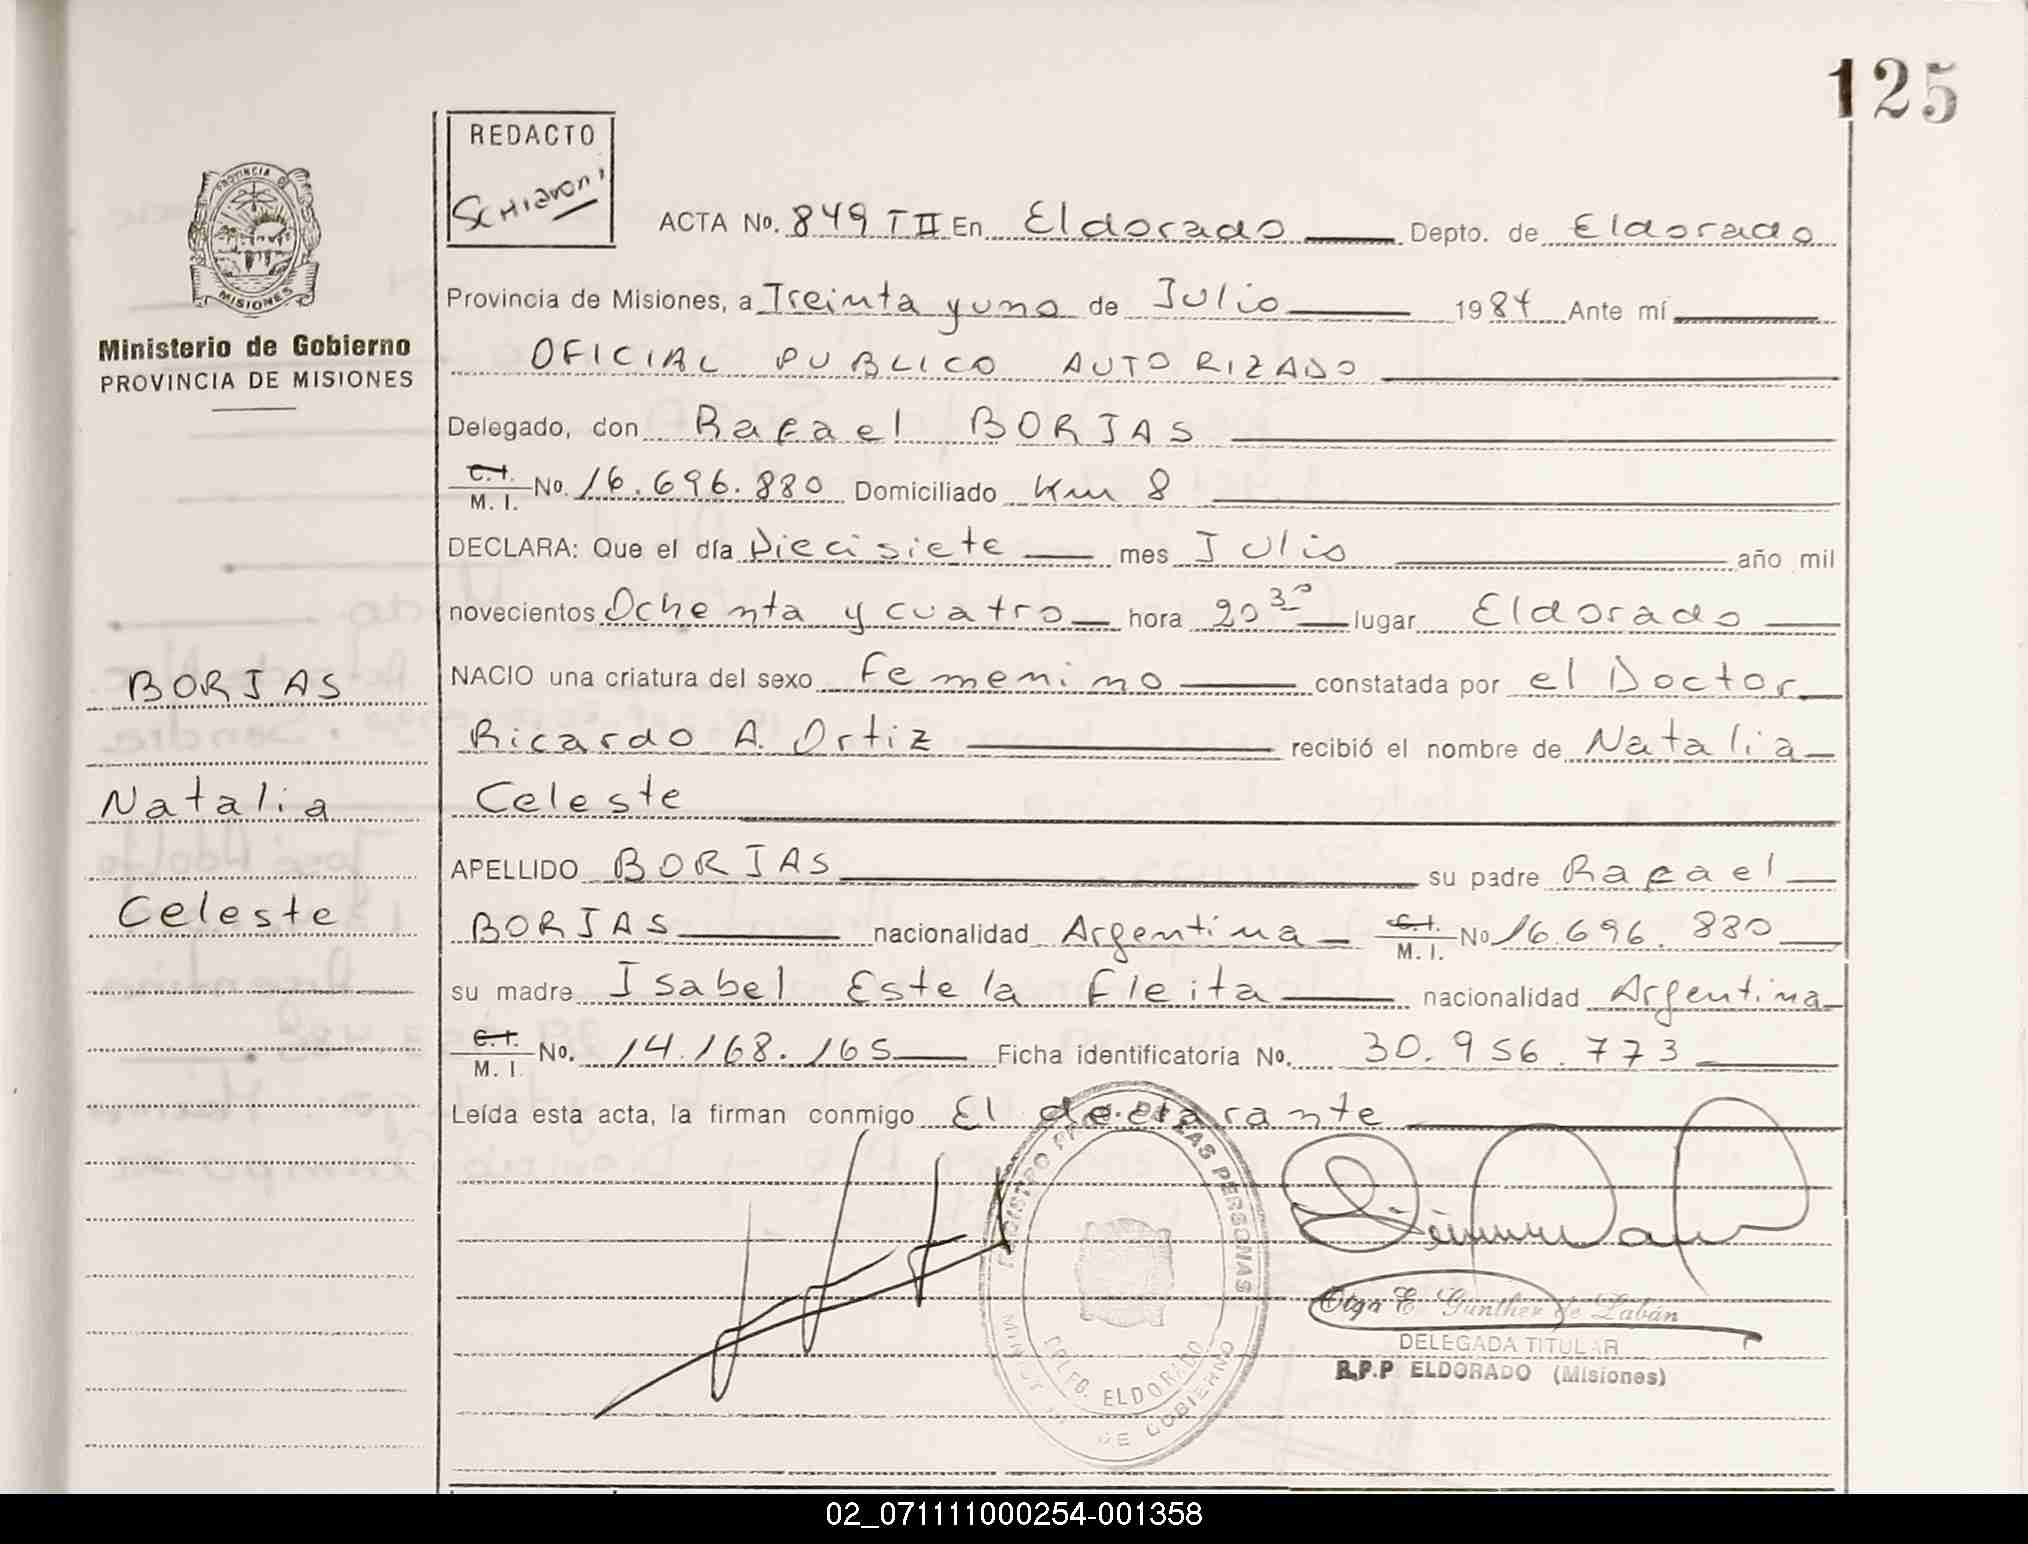 125
REDACTO
Schiavoni
PROVINCIA DE
MISIONES
Ministerio de Gobierno
PROVINCIA DE MISIONES
ACTA No. 849 T II En Eldorado Depto. de Eldorado
Provincia de Misiones, a Treinta y uno de Julio 1984 Ante mí
OFICIAL PUBLICO AUTORIZADO
Delegado, don Rafael BORJAS
C.I. M. I. No. 16.696.880 Domiciliado Km 8
DECLARA: Que el día Diecisiete mes Julio año mil
novecientos Ochenta y cuatro hora 20 30 lugar Eldorado
NACIO una criatura del sexo Femenino constatada por el Doctor
Ricardo A. Ortiz recibió el nombre de Natalia
Celeste
APELLIDO BORJAS su padre Rafael
BORJAS nacionalidad Argentina C.I. M. I. No 16.696.880
su madre Isabel Estela Fleita nacionalidad Argentina
C.I. M. I. No. 14.168.165 Ficha identificatoria No. 30.956.773
Leída esta acta, la firman conmigo El declarante
BORJAS
Natalia
Celeste
REGISTRO PROV. DE LAS PERSONAS
DELEG. ELDORADO
DE GOBIERNO
Olga E. Günther de Labán
DELEGADA TITULAR
R.P.P ELDORADO (Misiones)
02_071111000254-001358